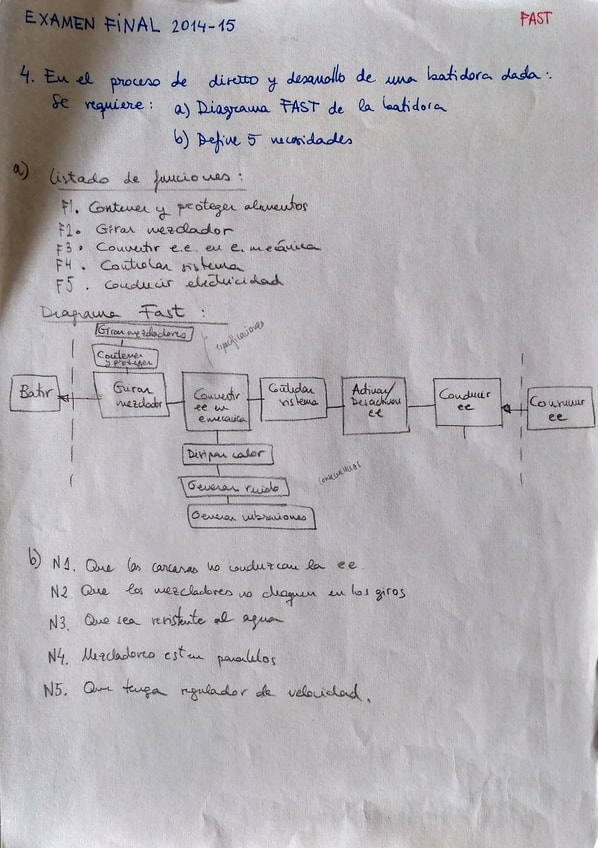 EXAMEN FINAL 2014-15
FAST
4. En el proceso de diseño y desarrollo de una batidora dada:
Se requiere: a) Diagrama FAST de la batidora
b) Define 5 necesidades
a) Listado de funciones:
F1. Contener y proteger alimentos
F2. Girar mezclador
F3. Convertir e.e. en e. mecánica
F4. Controlar sistema
F5. Conducir electricidad
Diagrama Fast:
Girar mezcladores
especificaciones
Contener y proteger
Batir
Girar mezclador
Convertir ee en e mecánica
Controlar sistema
Activar/Desactivar ee
Conducir ee
ee
Disipar calor
Generar ruido
Generar vibraciones
b) N1. Que las carcasas no conduzcan la ee.
N2. Que los mezcladores no choquen en los giros
N3. Que sea resistente al agua
N4. Mezcladores esten paralelos
N5. Que tenga regulador de velocidad.